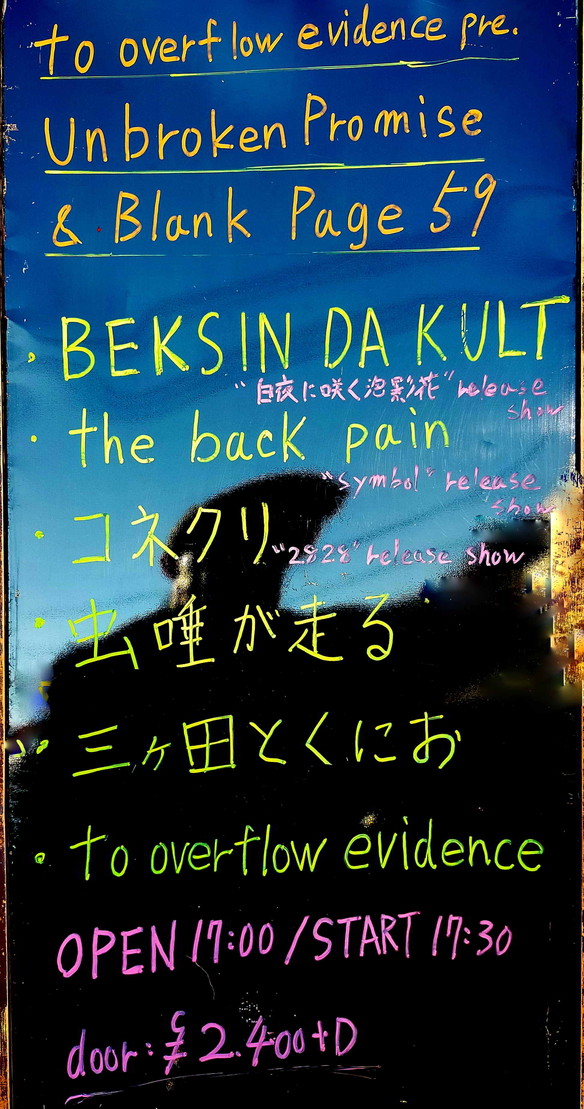 to overflow evidence pre.
Unbroken Promise
& Blank Page 59
・BEKSIN DA KULT
"白夜に咲く泡影花" release
show
・the back pain
"symbol" release
show
・コネクリ
"2828" release show
・虫唾が走る
・三ヶ田とくにお
・to overflow evidence
OPEN 17:00 / START 17:30
door: ¥2.400+D